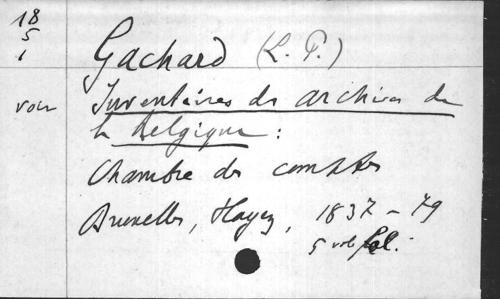 18
5
1
Gachard (L. P.)
voir Inventaires des archives de
la Belgique :
Chambre des comptes
Bruxelles, Hayez, 1837 - 79
5 vol fol.